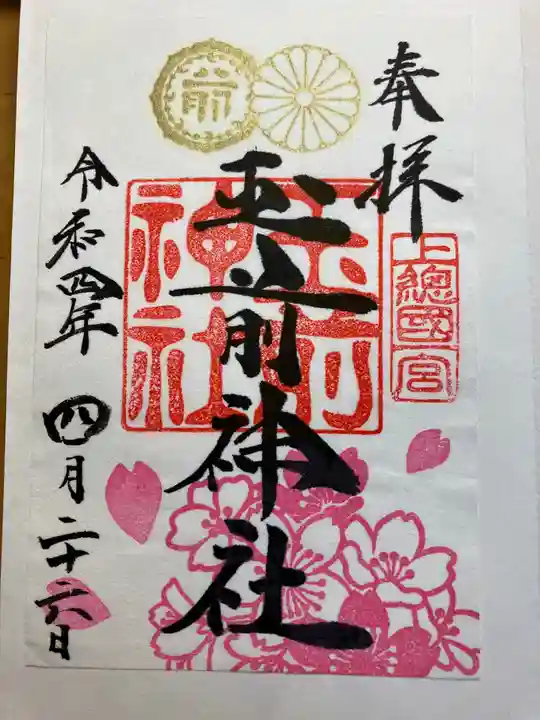 奉拝
上總國一宮
玉前神社
玉前神社
前
令和四年
四月二十六日